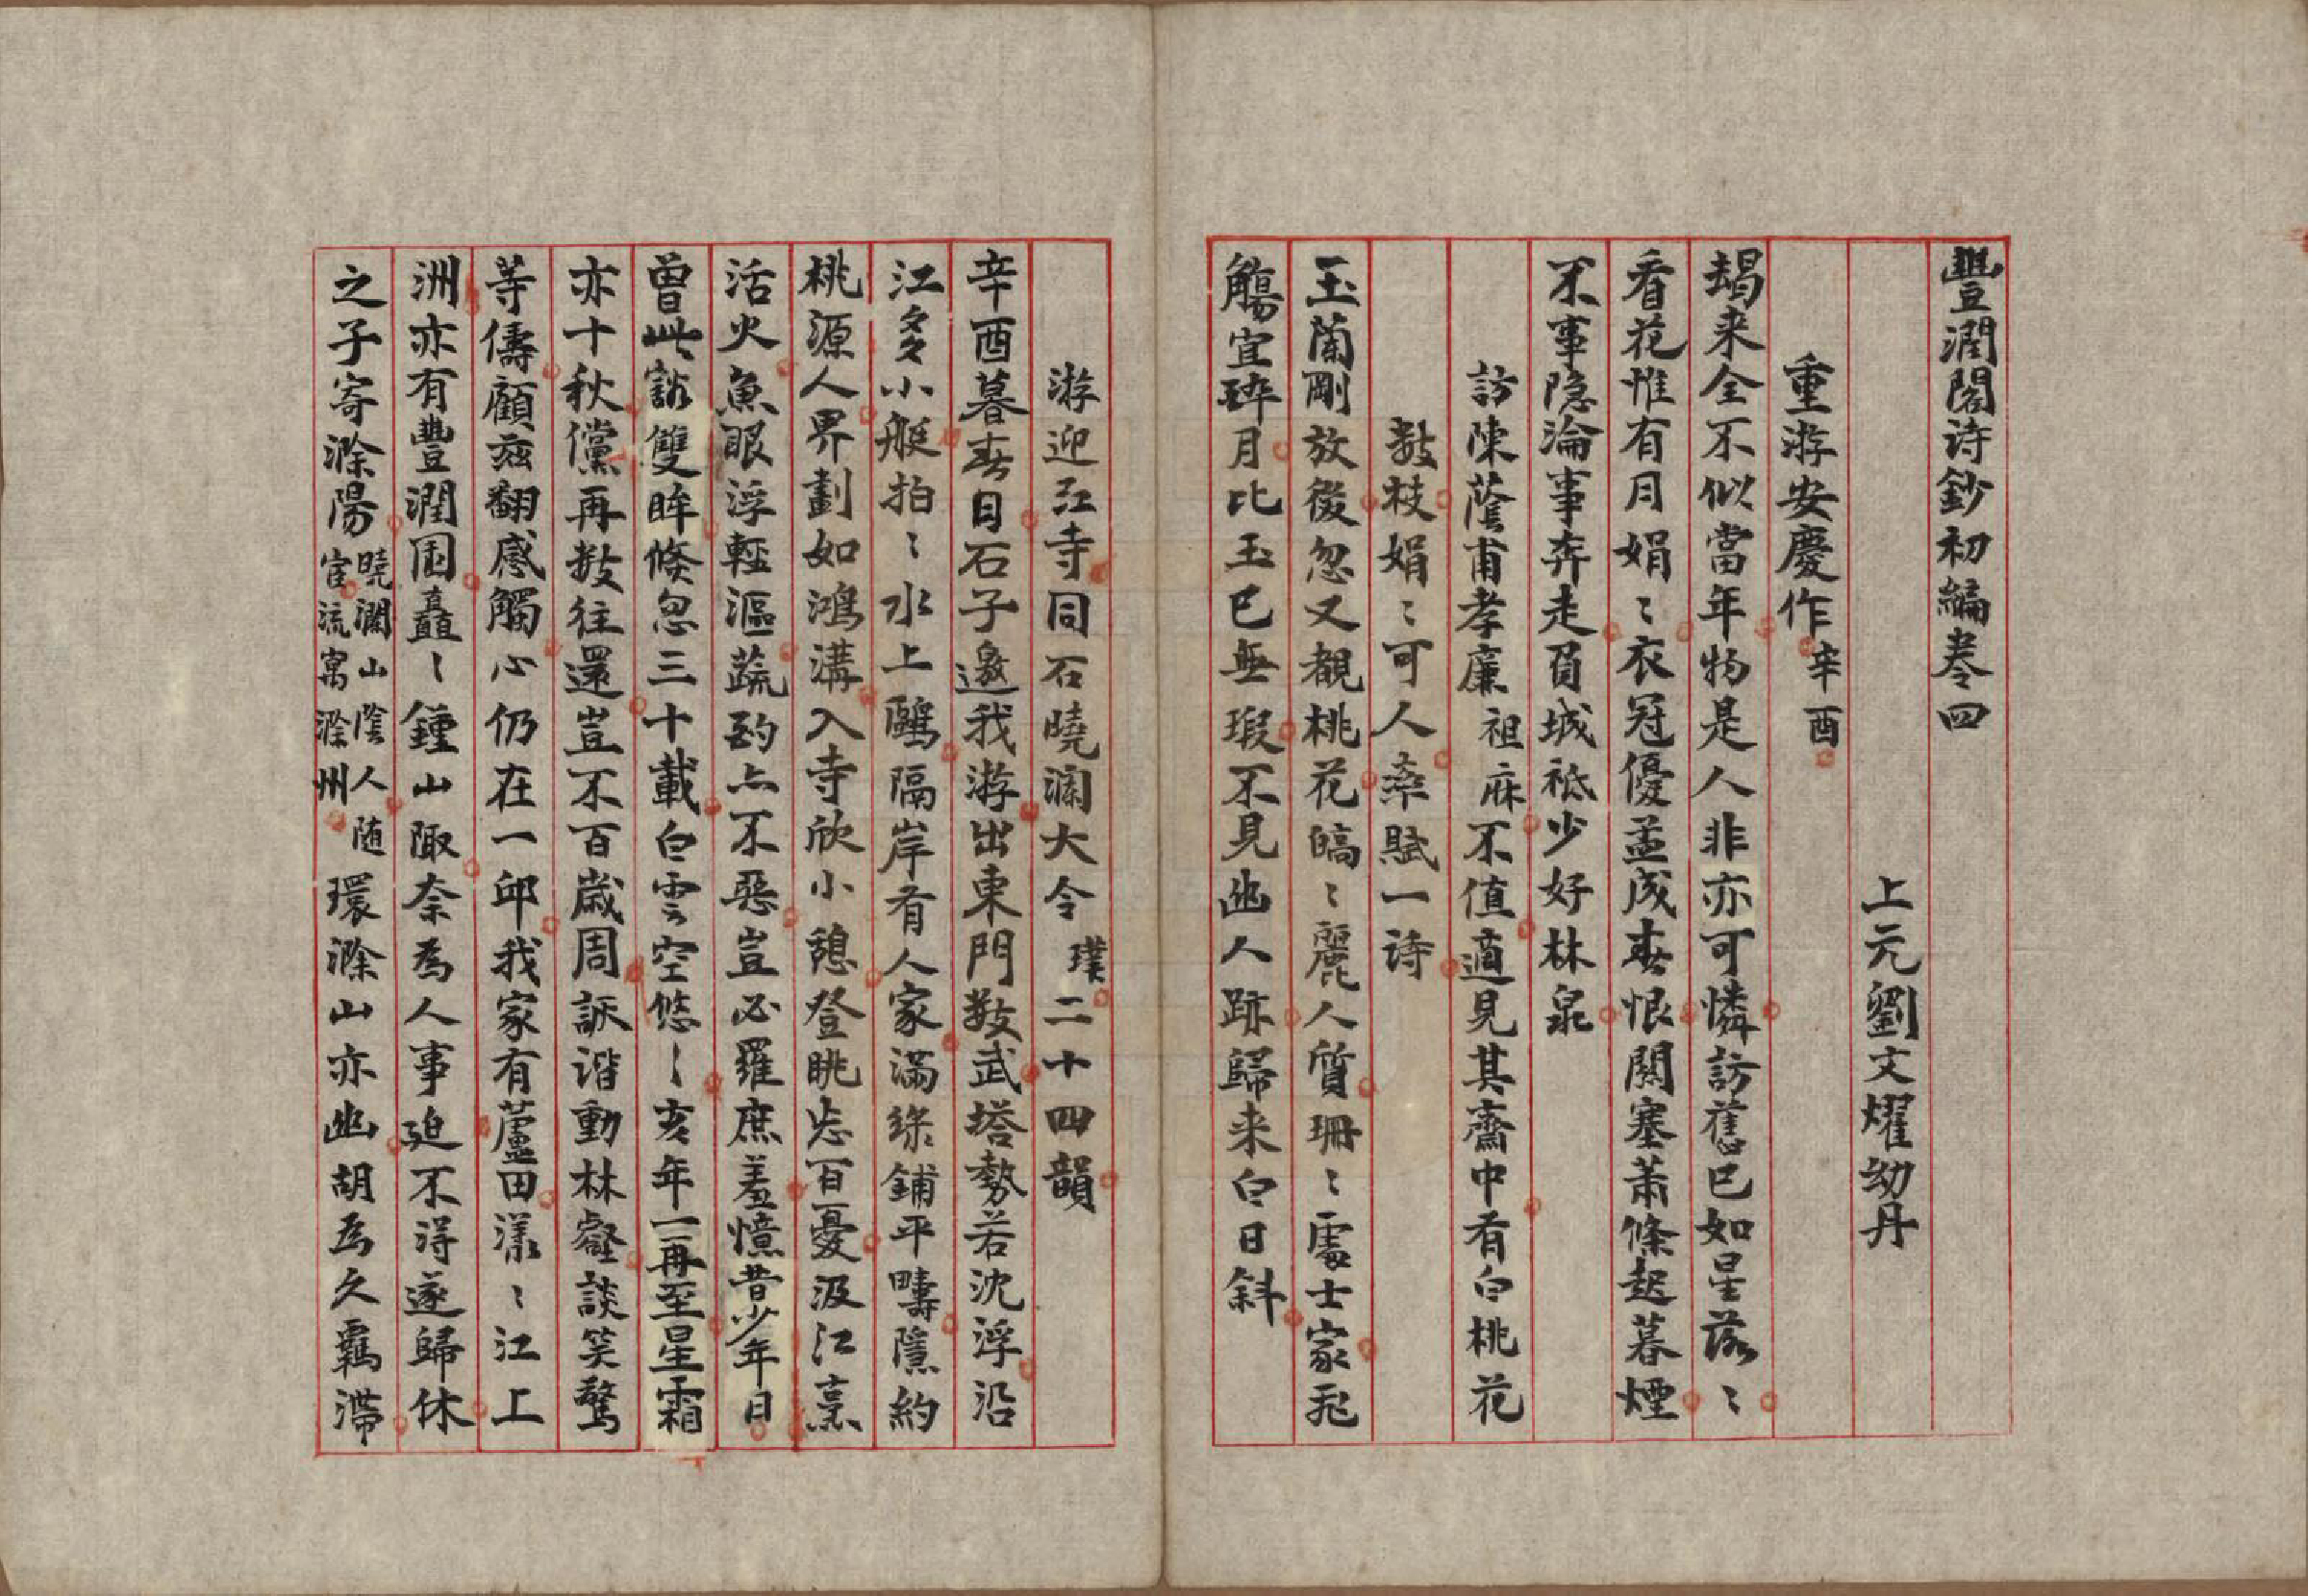 豐潤閣詩鈔初編卷四
上元劉文燿幼丹
重游安慶作辛酉
朅来全不似當年物是人非亦可憐訪舊已如星落〻
看花惟有月娟〻衣冠優孟成春恨關塞蕭條起暮煙
不事隐淪事奔走負城祗少好林泉
訪陳蔭甫孝廉祖庥不值適見其齋中有白桃花
數枝娟〻可人率賦一詩
玉蘭剛放後忽又覩桃花皜〻麗人質珊〻處士家飛
觴宜醉月比玉已無瑕不見幽人跡歸来白日斜
游迎江寺同石曉瀾大令璞二十四韻
辛酉暮春日石子邀我游出東門數武塔勢若沈浮沿
江多小艇拍〻水上鷗隔岸有人家滿綠鋪平疇隱約
桃源人界劃如鴻溝入寺欣小憩登眺忘百憂汲江烹
活火魚眼浮輕漚蔬酌亦不惡豈必羅庶羞憶昔少年日
曾此談雙眸倏忽三十載白雲空悠〻亥年一再至星霜
亦十秋儻再數往還豈不百歲周詼谐動林壑談笑驚
等儔顧茲翻感觸心仍在一邱我家有蘆田漾〻江上
洲亦有豐潤園矗〻鍾山陬奈為人事迫不得遂歸休
之子寄滁陽曉瀾山陰人随宦流寓滁州環滁山亦幽胡為久羈滯